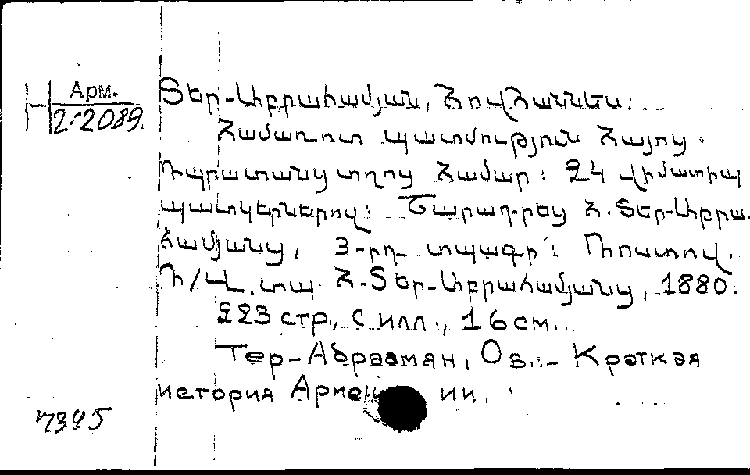 Арм.
2-2089.
Տեր-Աբրահամյան, Հովհաննես.
Համառոտ պատմություն Հայոց.
Դպրատանց տղոց համար: 24 վիմատիպ
պատկերներով: Շարադրեց Հ. Տեր-Աբրա-
համյանց, 3-րդ տպագր: Ռոստով.
Դ/Վ. տպ. Հ. Տեր-Աբրահամյանց, 1880.
223 стр., с илл., 16 см.
Тер-Абрамян, Ов. - Краткая
история Армении.
7395